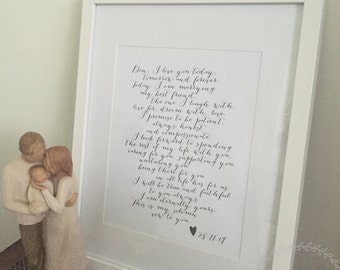 Dan, I love you today,
tomorrow and forever.
Today I am marrying
my best friend,
the one I laugh with,
live for, dream with, love.
I promise to be patient,
always honest
and compassionate.
I look forward to spending
the rest of my life with you,
caring for you, supporting you,
nurturing you,
being there for you
in all life has for us.
I will be true and faithful
to you always.
I am eternally yours.
This is my solemn
vow to you.